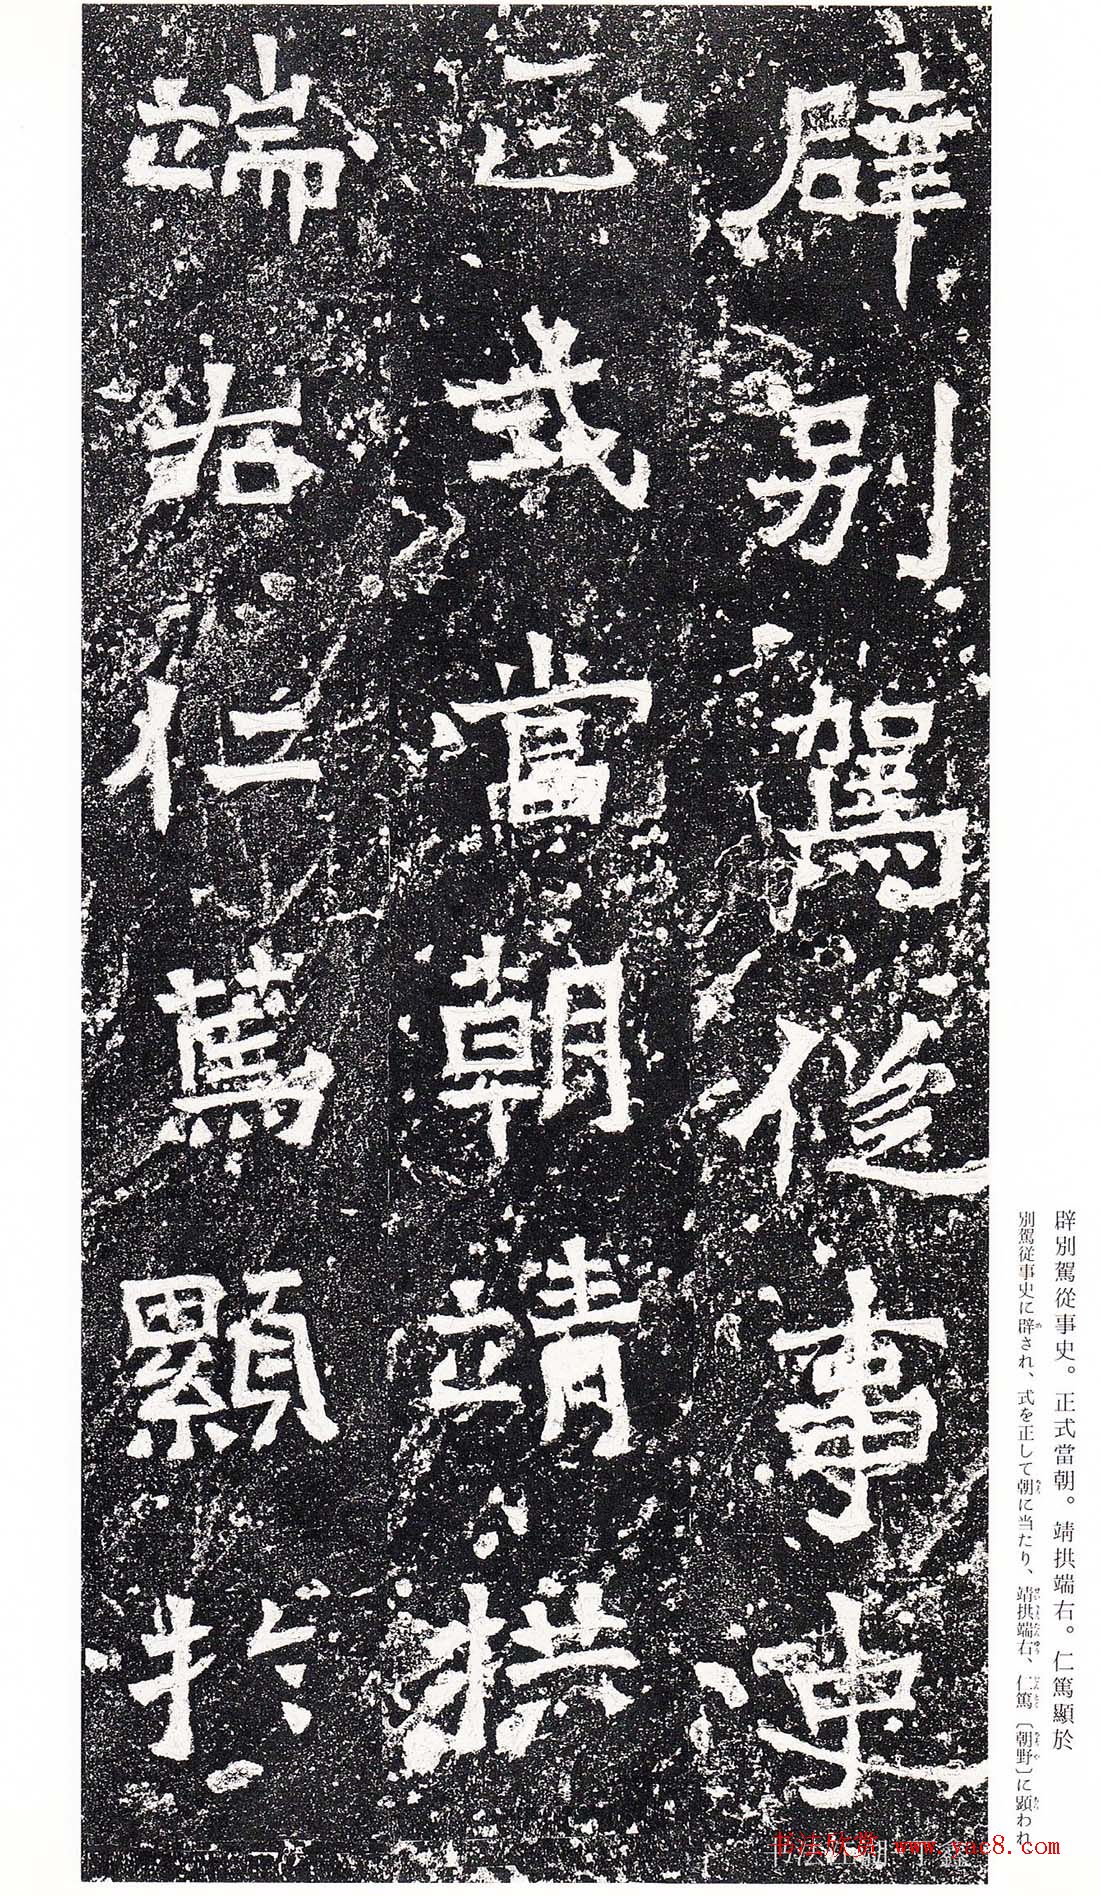 辟別駕從事史
正式當朝靖拱
端右仁篤顯於
辟別駕從事史。正式當朝。靖拱端右。仁篤顯於
別駕従事史に辟され、式を正して朝に当たり、靖拱端右、仁篤〔朝野〕に顕われ
书法欣赏 www.yac8.com